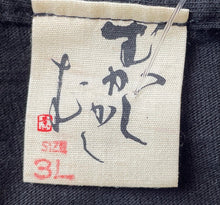 むかし
むかし
SIZE
3L